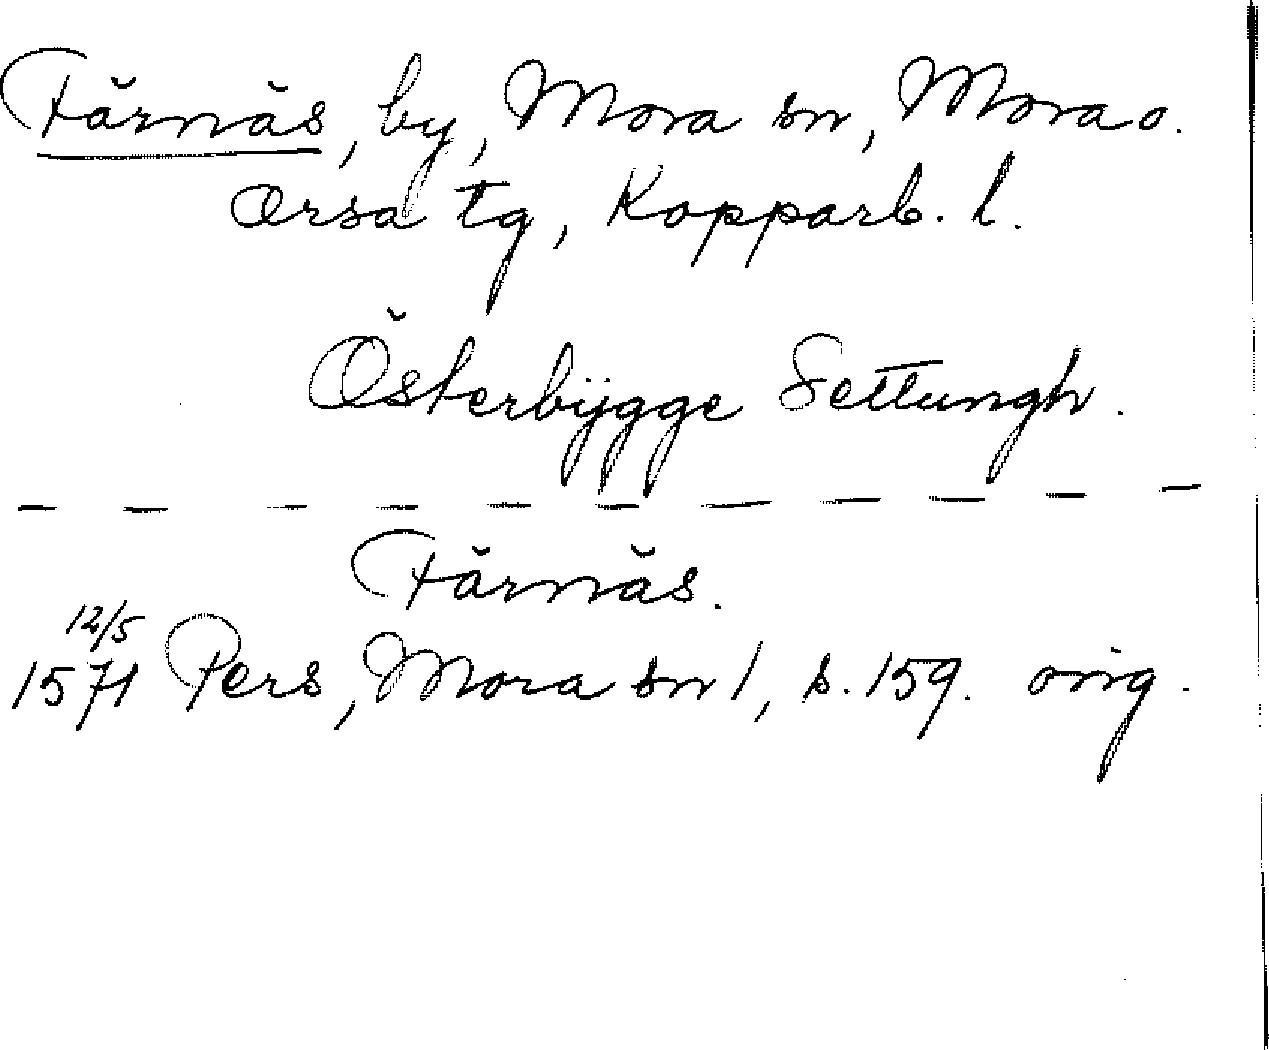 Färnäs, by, Mora sn, Mora o.
Orsa tg, Kopparb. l.
Österbÿgge Settungh.
Färnäs.
12/5
1571 Pers, Mora sn 1, s. 159. orig.